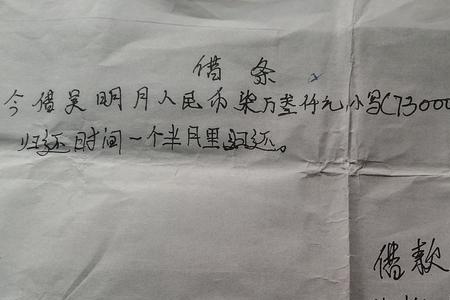 借条
今借吴明月人民币柒万叁仟元小写(73000
归还时间一个半月里归还。
借款